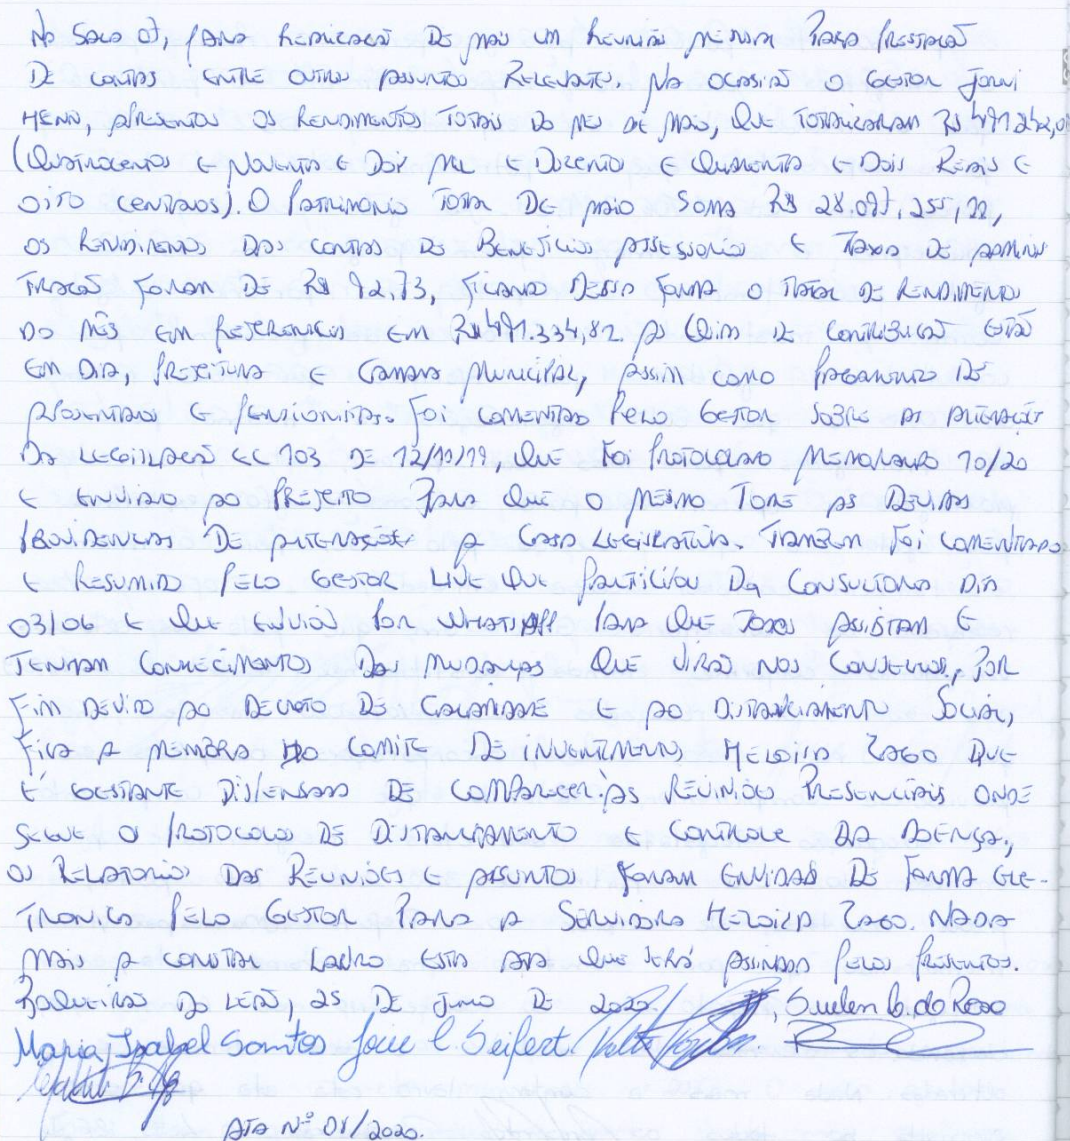 na sala 07, para realização de mais um reunião mensal para prestação
de contas entre outro assunto relevante. Na ocasião o gestor Jovi
Henn, apresentou os rendimentos totais do mês de maio, que totalizaram R$ 491.242,0
(quatrocentos e noventa e dois mil e duzentos e quarenta e dois reais e
oito centavos). O patrimônio total de maio soma R$ 28.097.255,11,
os rendimento das contas de benefício assessorio e taxa de adminis
tração foram de R$ 92.73, ficando dessa forma o total de rendimento
do mês em referencia em R$ 491.334,82. A guia de contribuição estão
em dia, Prefeitura e Camara Municipal, assim como pagamento de
aposentado e pensionista. Foi comentado pelo gestor sobre as alteração
da legislação EC 103 de 12/11/19, que foi protocolado memorando 10/20
e enviado ao prefeito para que o mesmo tome as devida
providencias de alteração a Casa Legislativa. Também foi comentado
e resumido pelo gestor live que participou da consultoria dia
03/06 e que enviou por whatsapp para que todos assistam e
tenham conhecimento das mudanças que virão nos convenios, por
fim devido ao decreto de calamidade e ao distanciamento social,
fica a membra do comite de investimento Heloisa Zago que
é gestante dispensada de comparecer às reuniões presenciais onde
segue o protocolo de distanciamento e controle da doença,
o relatorio das reuniões e assuntos foram enviadas de forma ele-
tronica pelo gestor para a servidora Heloisa Zago. Nada
mais a constar lavro esta ata que será assinada pelos presentes.
Balneário do Leão, 25 de junho de 2020. , Suelen
Maria Isabel Santos Joice C Seifert
ATA Nº 08/2020.